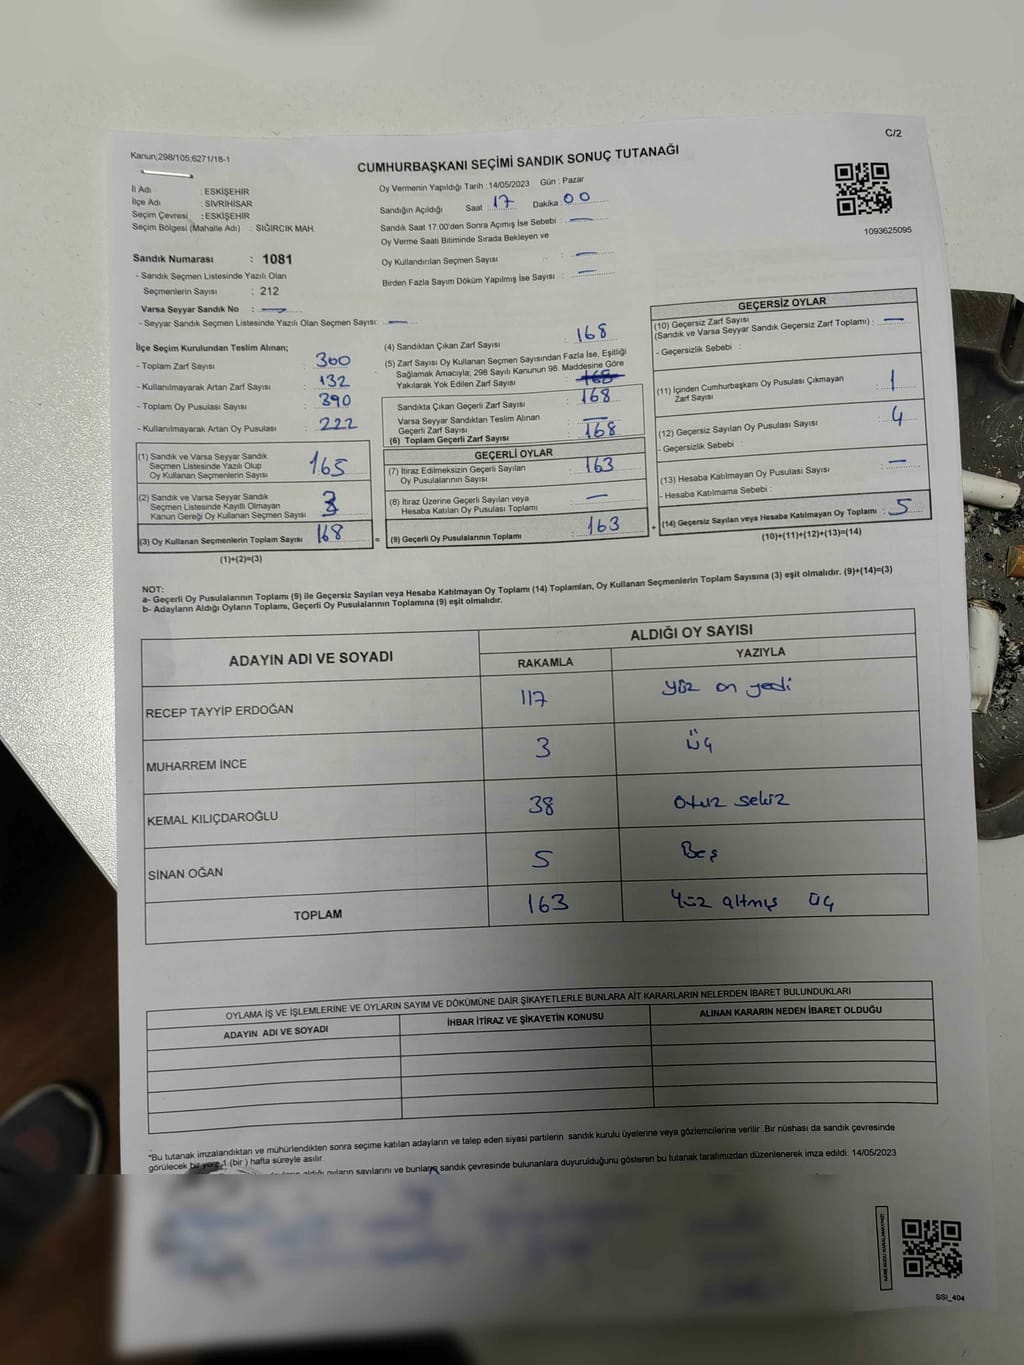 C/2
Kanun;298/105;6271/18-1
CUMHURBAŞKANI SEÇİMİ SANDIK SONUÇ TUTANAĞI
İl Adı : ESKİŞEHİR
İlçe Adı : SİVRİHİSAR
Seçim Çevresi : ESKİŞEHİR
Seçim Bölgesi (Mahalle Adı) : SIĞIRCIK MAH.
Oy Vermenin Yapıldığı Tarih : 14/05/2023 Gün : Pazar
Sandığın Açıldığı Saat : 17 Dakika : 00
Sandık Saat 17:00'den Sonra Açımış İse Sebebi : —
Oy Verme Saati Bitiminde Sırada Bekleyen ve
Oy Kullandırılan Seçmen Sayısı : —
Birden Fazla Sayım Döküm Yapılmış İse Sayısı : —
1093625095
Sandık Numarası : 1081
- Sandık Seçmen Listesinde Yazılı Olan
Seçmenlerin Sayısı : 212
Varsa Seyyar Sandık No : —
- Seyyar Sandık Seçmen Listesinde Yazılı Olan Seçmen Sayısı: —
İlçe Seçim Kurulundan Teslim Alınan;
- Toplam Zarf Sayısı : 300
- Kullanılmayarak Artan Zarf Sayısı : 132
- Toplam Oy Pusulası Sayısı : 390
- Kullanılmayarak Artan Oy Pusulası : 222
(1) Sandık ve Varsa Seyyar Sandık
Seçmen Listesinde Yazılı Olup
Oy Kullanan Seçmenlerin Sayısı 165
(2) Sandık ve Varsa Seyyar Sandık
Seçmen Listesinde Kayıtlı Olmayan
Kanun Gereği Oy Kullanan Seçmen Sayısı 3
(3) Oy Kullanan Seçmenlerin Toplam Sayısı 168
(1)+(2)=(3)
(4) Sandıktan Çıkan Zarf Sayısı 168
(5) Zarf Sayısı Oy Kullanan Seçmen Sayısından Fazla İse, Eşitliği
Sağlamak Amacıyla; 298 Sayılı Kanunun 98. Maddesine Göre
Yakılarak Yok Edilen Zarf Sayısı : 168
Sandıkta Çıkan Geçerli Zarf Sayısı : 168
Varsa Seyyar Sandıktan Teslim Alınan
Geçerli Zarf Sayısı : —
(6) Toplam Geçerli Zarf Sayısı : 168
GEÇERLİ OYLAR
(7) İtiraz Edilmeksizin Geçerli Sayılan
Oy Pusulalarının Sayısı : 163
(8) İtiraz Üzerine Geçerli Sayılan veya
Hesaba Katılan Oy Pusulası Toplamı : —
= (9) Geçerli Oy Pusulalarının Toplamı : 163
GEÇERSİZ OYLAR
(10) Geçersiz Zarf Sayısı
(Sandık ve Varsa Seyyar Sandık Geçersiz Zarf Toplamı) : —
- Geçersizlik Sebebi :
(11) İçinden Cumhurbaşkanı Oy Pusulası Çıkmayan
Zarf Sayısı : 1
(12) Geçersiz Sayılan Oy Pusulası Sayısı : 4
- Geçersizlik Sebebi :
(13) Hesaba Katılmayan Oy Pusulası Sayısı : —
- Hesaba Katılmama Sebebi :
+ (14) Geçersiz Sayılan veya Hesaba Katılmayan Oy Toplamı : 5
(10)+(11)+(12)+(13)=(14)
NOT:
a- Geçerli Oy Pusulalarının Toplamı (9) ile Geçersiz Sayılan veya Hesaba Katılmayan Oy Toplamı (14) Toplamları, Oy Kullanan Seçmenlerin Toplam Sayısına (3) eşit olmalıdır. (9)+(14)=(3)
b- Adayların Aldığı Oyların Toplamı, Geçerli Oy Pusulalarının Toplamına (9) eşit olmalıdır.
ADAYIN ADI VE SOYADI ALDIĞI OY SAYISI
RAKAMLA YAZIYLA
RECEP TAYYİP ERDOĞAN 117 yüz on yedi
MUHARREM İNCE 3 üç
KEMAL KILIÇDAROĞLU 38 otuz sekiz
SİNAN OĞAN 5 Beş
TOPLAM 163 Yüz altmış üç
OYLAMA İŞ VE İŞLEMLERİNE VE OYLARIN SAYIM VE DÖKÜMÜNE DAİR ŞİKAYETLERLE BUNLARA AİT KARARLARIN NELERDEN İBARET BULUNDUKLARI
ADAYIN ADI VE SOYADI İHBAR İTİRAZ VE ŞİKAYETİN KONUSU ALINAN KARARIN NEDEN İBARET OLDUĞU
*Bu tutanak imzalandıktan ve mühürlendikten sonra seçime katılan adayların ve talep eden siyasi partilerin sandık kurulu üyelerine veya gözlemcilerine verilir .Bir nüshası da sandık çevresinde
görülecek bir yere 1 (bir ) hafta süreyle asılır.
aldığı oyların sayılarını ve bunların sandık çevresinde bulunanlara duyurulduğunu gösteren bu tutanak tarafımızdan düzenlenerek imza edildi. 14/05/2023
SSI_404